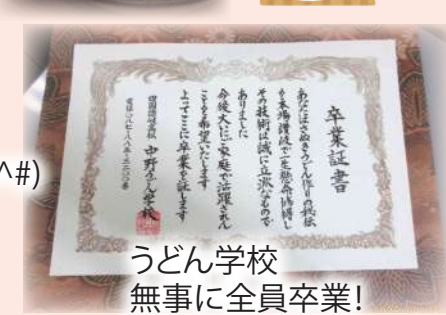 卒業証書
あなたはさぬきうどん作りの秘伝
を本場讃岐で一生懸命修得し
その技術は誠に立派なもので
ありました
今後大いにご家庭で活躍されん
ことを希望いたします
よってここに卒業を証します
中野うどん学校
^#)
うどん学校
無事に全員卒業!